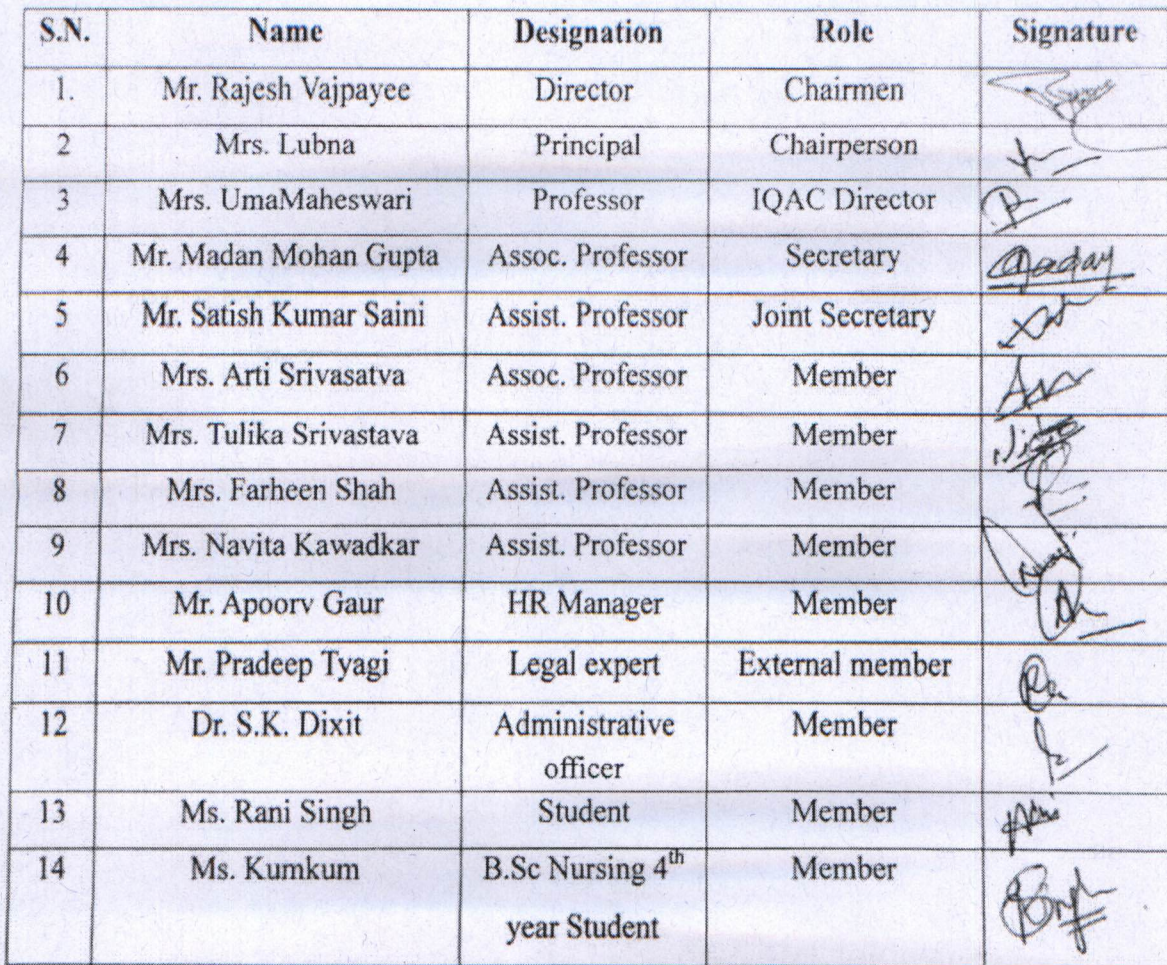 S.N. Name Designation Role Signature
1. Mr. Rajesh Vajpayee Director Chairmen
2 Mrs. Lubna Principal Chairperson
3 Mrs. UmaMaheswari Professor IQAC Director
4 Mr. Madan Mohan Gupta Assoc. Professor Secretary
5 Mr. Satish Kumar Saini Assist. Professor Joint Secretary
6 Mrs. Arti Srivasatva Assoc. Professor Member
7 Mrs. Tulika Srivastava Assist. Professor Member
8 Mrs. Farheen Shah Assist. Professor Member
9 Mrs. Navita Kawadkar Assist. Professor Member
10 Mr. Apoorv Gaur HR Manager Member
11 Mr. Pradeep Tyagi Legal expert External member
12 Dr. S.K. Dixit Administrative Member
officer
13 Ms. Rani Singh Student Member
14 Ms. Kumkum B.Sc Nursing 4th Member
year Student